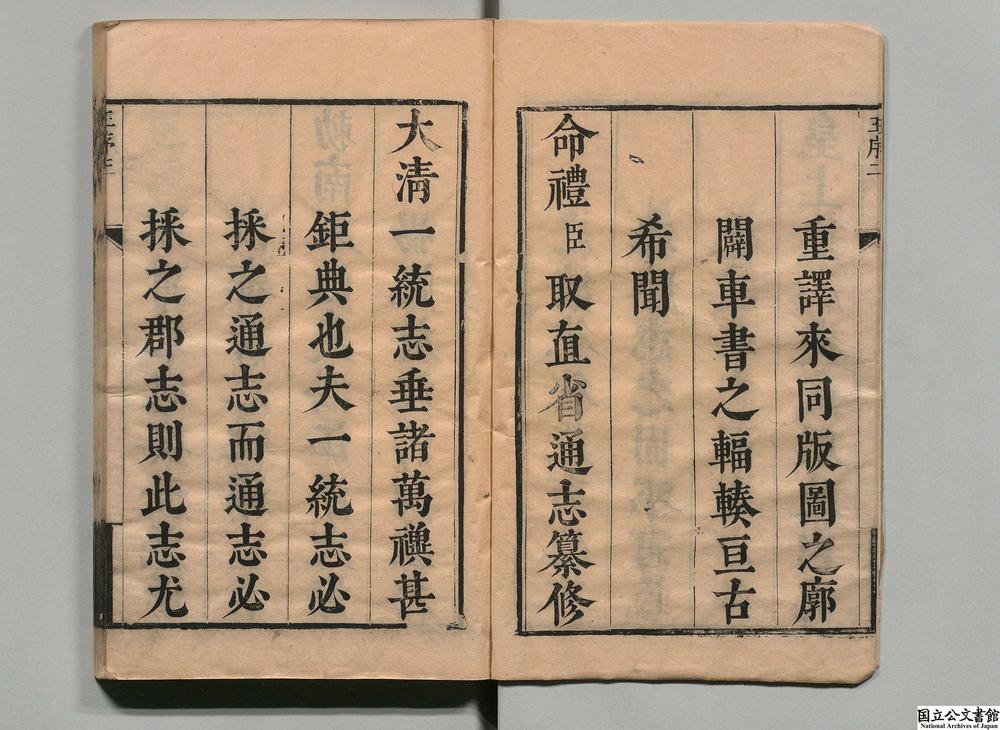 王序二
重譯來同版圖之廓
闢車書之輻輳亘古
希聞
命禮臣取直省通志纂修
大清一統志垂諸萬禩甚
鉅典也夫一統志必
採之通志而通志必
採之郡志則此志尤
王序三
国立公文書館
National Archives of Japan